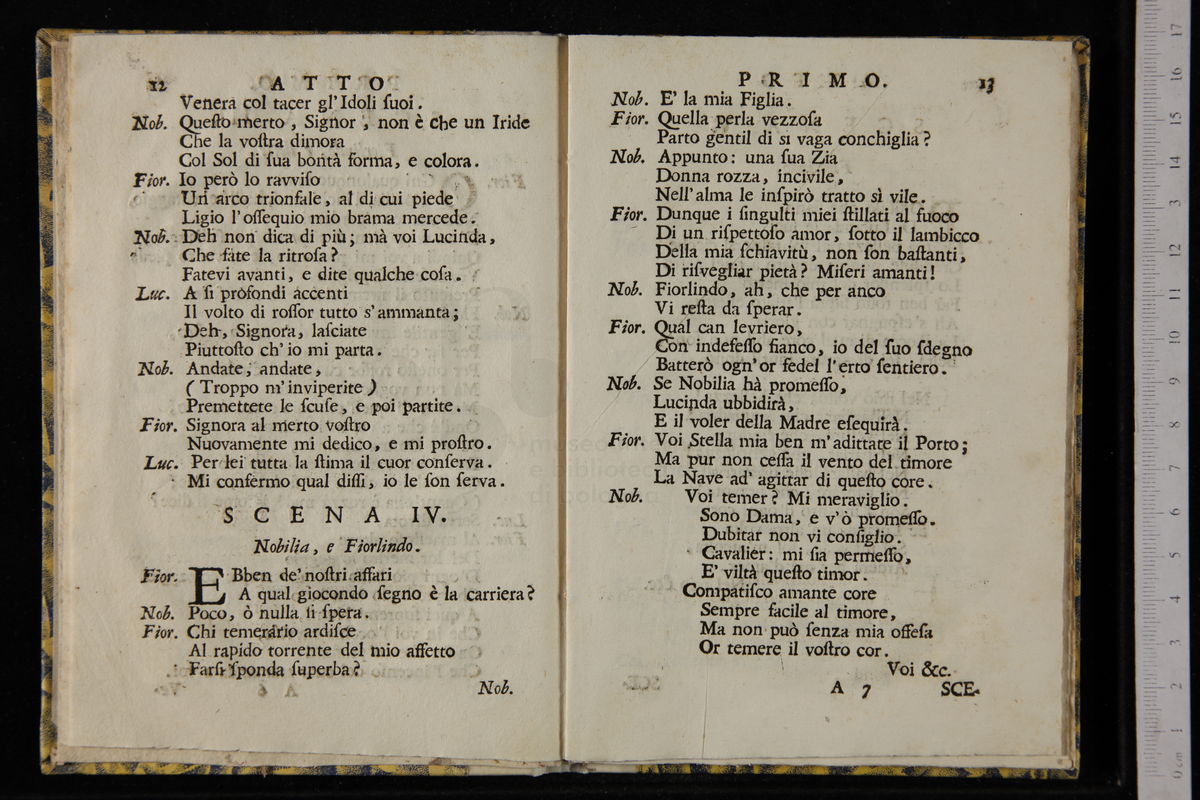 12 ATTO
Venera col tacer gl'Idoli ſuoi.
Nob. Queſto merto, Signor, non è che un Iride
Che la voſtra dimora
Col Sol di ſua bontà forma, e colora.
Fior. Io però lo ravviſo
Un arco trionfale, al di cui piede
Ligio l'oſſequio mio brama mercede.
Nob. Deh non dica di più; mà voi Lucinda,
Che fate la ritroſa?
Fatevi avanti, e dite qualche coſa.
Luc. A ſi pròfondi accenti
Il volto di roſſor tutto s'ammanta;
Deh, Signora, laſciate
Piuttoſto ch'io mi parta.
Nob. Andate, andate,
(Troppo m'inviperite)
Premettete le ſcuſe, e poi partite.
Fior. Signora al merto voſtro
Nuovamente mi dedico, e mi proſtro.
Luc. Per lei tutta la ſtima il cuor conſerva.
Mi confermo qual diſſi, io le ſon ſerva.
SCENA IV.
Nobilia, e Fiorlindo.
Fior. EBben de'noſtri affari
A qual giocondo ſegno è la carriera?
Nob. Poco, ò nulla ſi ſpera.
Fior. Chi temerario ardiſce
Al rapido torrente del mio affetto
Farſi ſponda ſuperba?
Nob.
PRIMO. 13
Nob. E' la mia Figlia.
Fior. Quella perla vezzoſa
Parto gentil di sì vaga conchiglia?
Nob. Appunto: una ſua Zia
Donna rozza, incivile,
Nell'alma le inſpirò tratto sì vile.
Fior. Dunque i ſingulti miei ſtillati al fuoco
Di un riſpettoſo amor, ſotto il lambicco
Della mia ſchiavitù, non ſon baſtanti,
Di riſvegliar pietà? Miſeri amanti!
Nob. Fiorlindo, ah, che per anco
Vi reſta da ſperar.
Fior. Qual can levriero,
Con indefeſſo fianco, io del ſuo ſdegno
Batterò ogn'or fedel l'erto ſentiero.
Nob. Se Nobilia hà promeſſo,
Lucinda ubbidirà,
E il voler della Madre eſequirà.
Fior. Voi Stella mia ben m'adittate il Porto;
Ma pur non ceſſa il vento del timore
La Nave ad'agittar di queſto core.
Nob. Voi temer? Mi meraviglio.
Sono Dama, e v'ò promeſſo.
Dubitar non vi conſiglio.
Cavalier: mi ſia permeſſo,
E' viltà queſto timor.
Compatiſco amante core
Sempre facile al timore,
Ma non può ſenza mia offeſa
Or temere il voſtro cor.
Voi &c.
A 7 SCE-